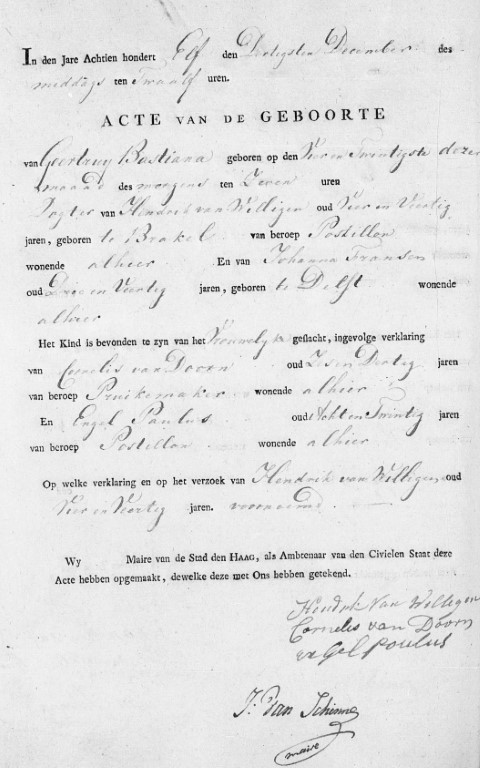 In den Jare Achtien hondert Elf den Dertigsten December des
middags ten Twaalf uren.
ACTE VAN DE GEBOORTE
van Geertruy Bastiana geboren op den Vier en Twintigste dezer
maand des morgens ten Zeven uren
Dogter van Hendrik van Willigen oud Vier en Veertig
jaren, geboren te Brakel van beroep Postillon
wonende alhier En van Johanna Fransen
oud Drie en Veertig jaren, geboren te Delft wonende
alhier
Het Kind is bevonden te zyn van het Vrouwelyk geslacht, ingevolge verklaring
van Cornelis van Doorn oud Zes en Dertig jaren
van beroep Pruikemaker wonende alhier
En Engel Paulus oud Acht en Twintig jaren
van beroep Postillon wonende alhier
Op welke verklaring en op het verzoek van Hendrik van Willigen, oud
Vier en Veertig jaren. voornoemd
Wy Maire van de Stad den HAAG, als Ambtenaar van den Civielen Staat deze
Acte hebben opgemaakt, dewelke deze met Ons hebben getekend.
Hendrik Van Willigen
Cornelis van Doorn
engel poulus
J. Van Schinne
maire